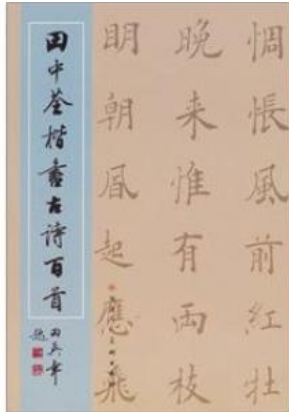 惆悵風前紅牡
晚来惟有両枝
明朝風起應飛
田中荃楷書古诗百首
田英章
题